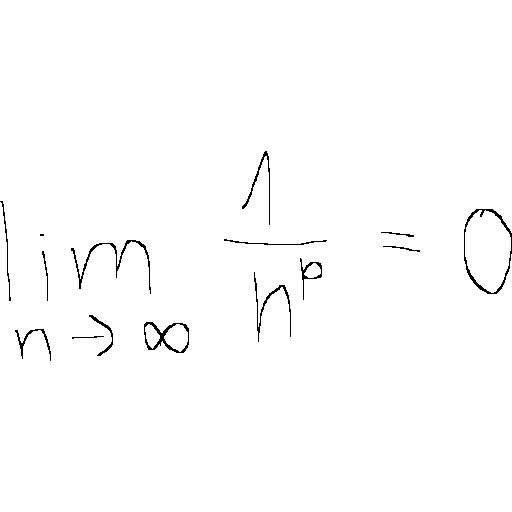 \lim_{n \to \infty} \frac{1}{n^p} = 0